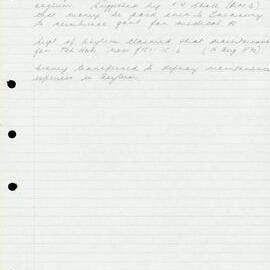 asylum. Suggested by
that money be paid over to Treasury
to reimburse govt for medical
Supt of Asylum claimed that maintenance
for Tah Wah now £151-15-6 (16 Aug
Money transferred to defray maintenance
expenses in Asylum